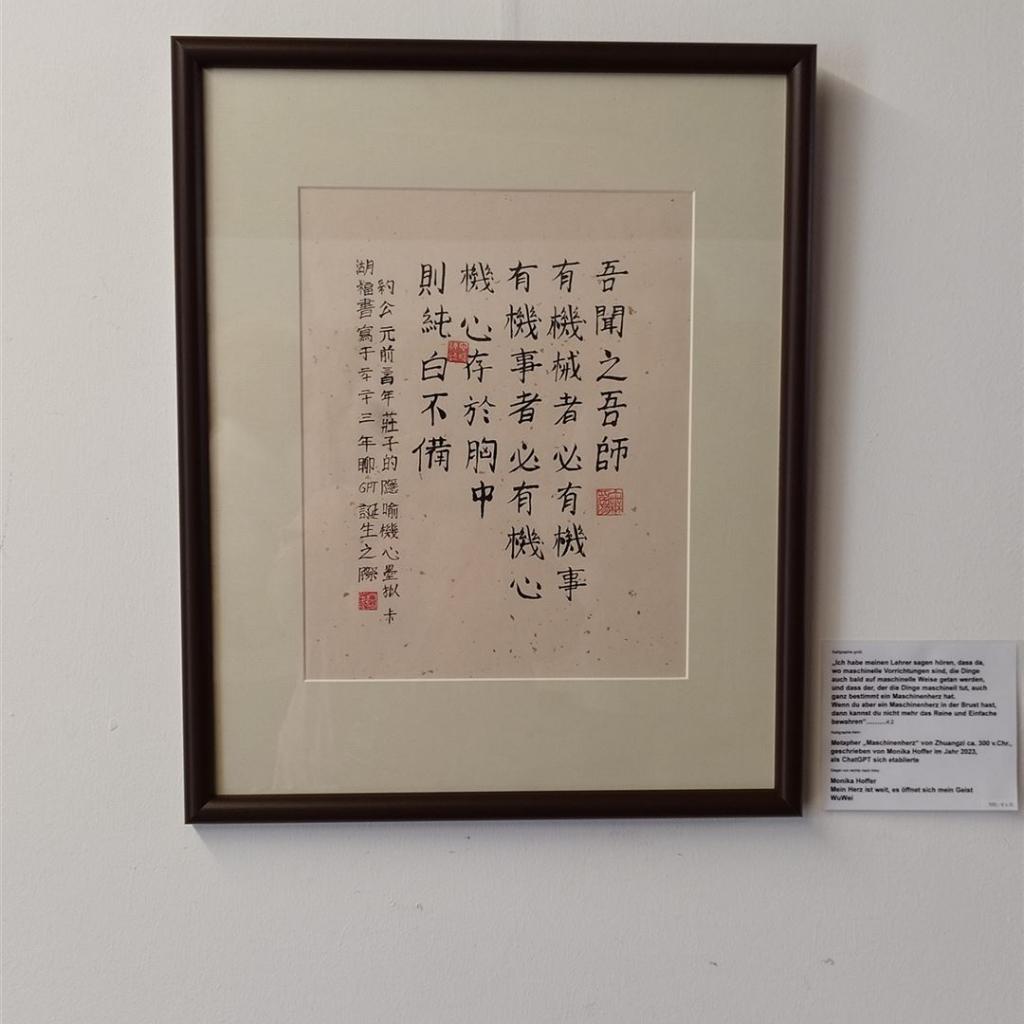 吾聞之吾師
有機械者必有機事
有機事者必有機心
機心存於胸中
則純白不備
約公元前 年莊子的隱喻機心墨 卡
湖福書寫于 三年聊GPT誕生之際
„Ich habe meinen Lehrer sagen hören, dass da,
wo maschinelle Vorrichtungen sind, die Dinge
auch bald auf maschinelle Weise getan werden,
und dass der, der die Dinge maschinell tut, auch
ganz bestimmt ein Maschinenherz hat.
Wenn du aber ein Maschinenherz in der Brust hast,
dann kannst du nicht mehr das Reine und Einfache
bewahren“
Metapher „Maschinenherz“ von Zhuangzi ca. 300 v.Chr.,
geschrieben von Monika Hoffer im Jahr 2023,
als ChatGPT sich etablierte
Monika Hoffer
Mein Herz ist weit, es öffnet sich mein Geist
WuWei